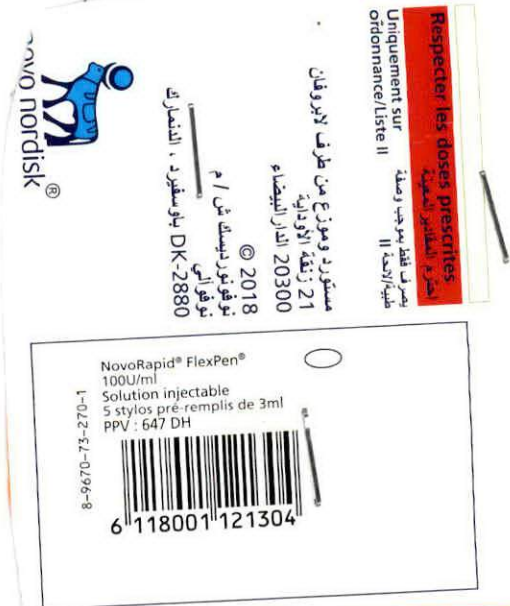 Respecter les doses prescrites
إحترم المقادير المعينة
Uniquement sur
ordonnance/Liste II
يصرف فقط بموجب وصفة
طبية/لائحة II
مستورد وموزع من طرف لابروفان
21 زنقة الأوداية
20300 الدار البيضاء
© 2018
نوفونورديسك ش / م
نوفو آلي
DK-2880 باوسفيرد ، الدنمارك
novo nordisk®
NovoRapid® FlexPen®
100U/ml
Solution injectable
5 stylos pré-remplis de 3ml
PPV : 647 DH
8-9670-73-270-1
6 118001 121304